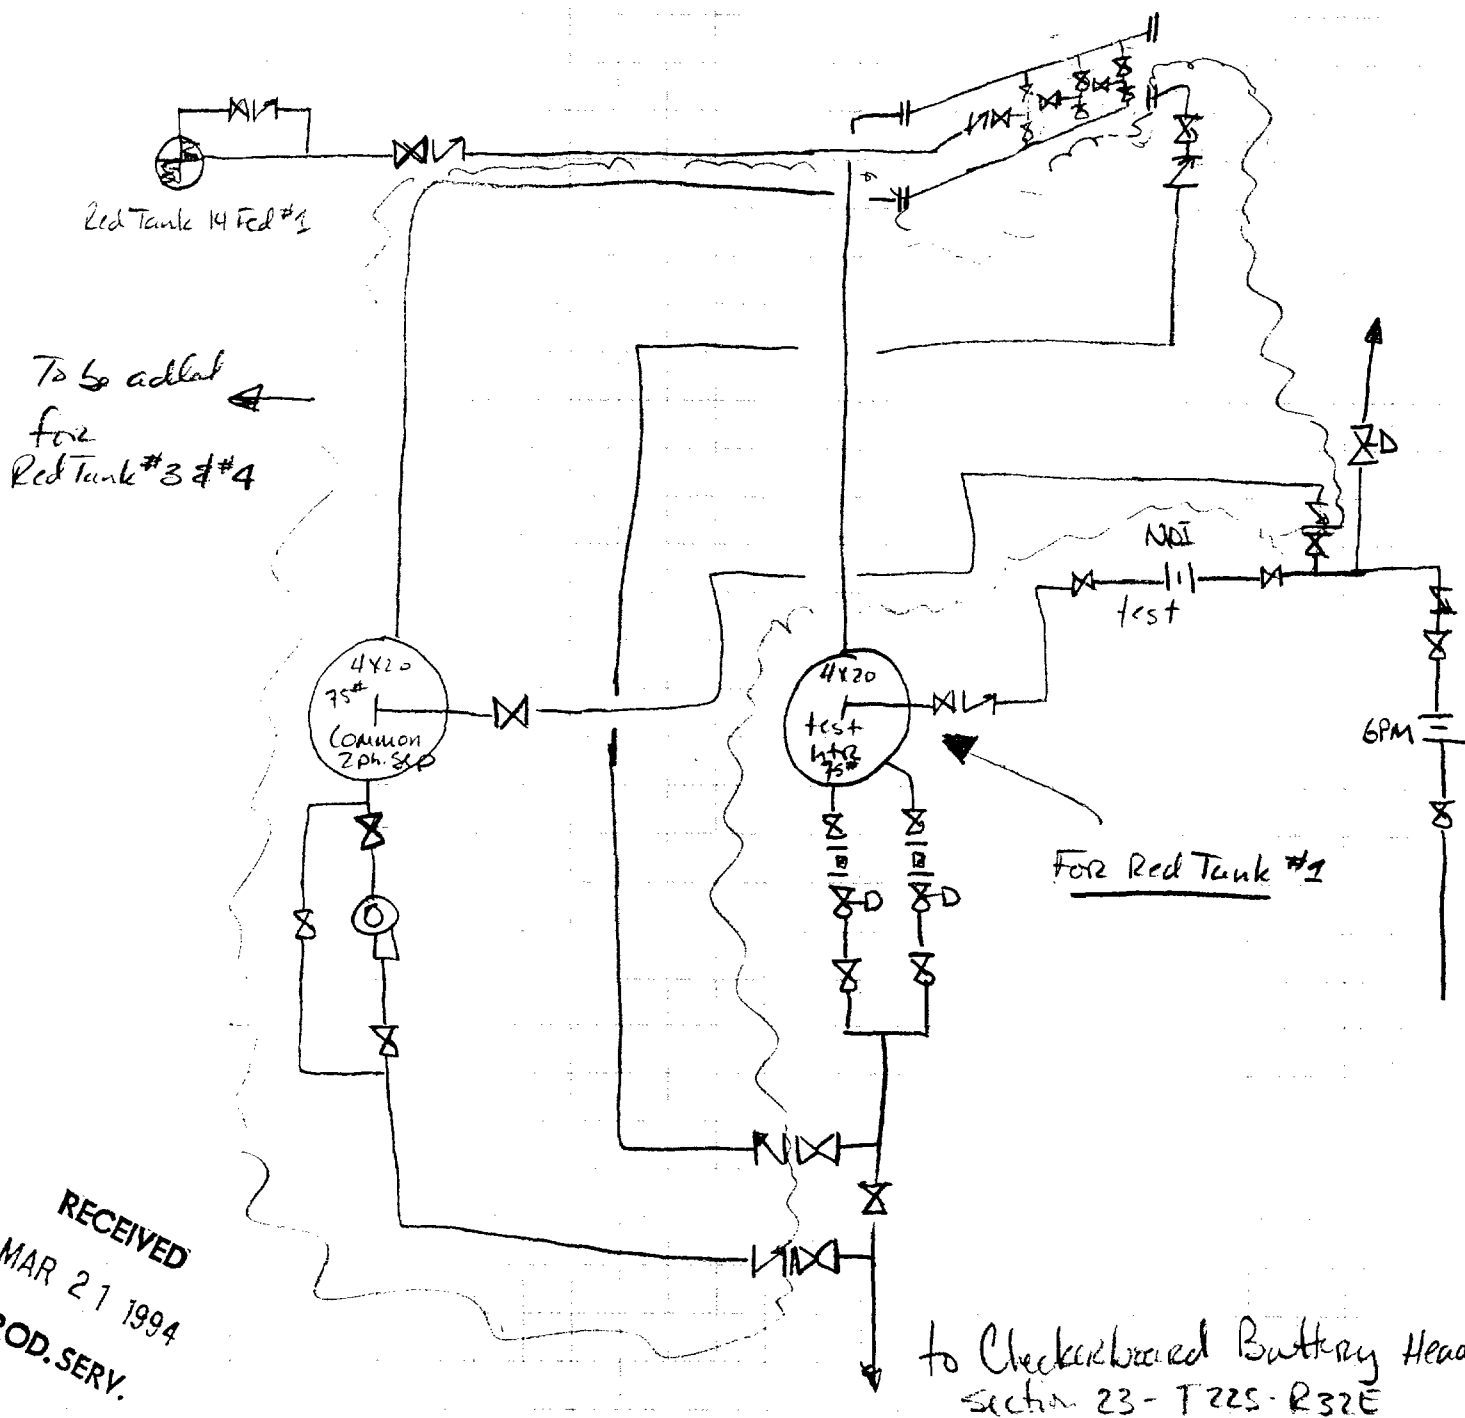 Red Tank 14 Fed #1
To be added
for
Red Tank #3 & #4
NDI
test
4X20
75#
Common
2ph. Sep
4X20
test
htr
75#
GPM
For Red Tank #1
D
D
D
RECEIVED
MAR 21 1994
ROD. SERV.
to Checkerboard Battery Head
Section 23 - T22S - R32E